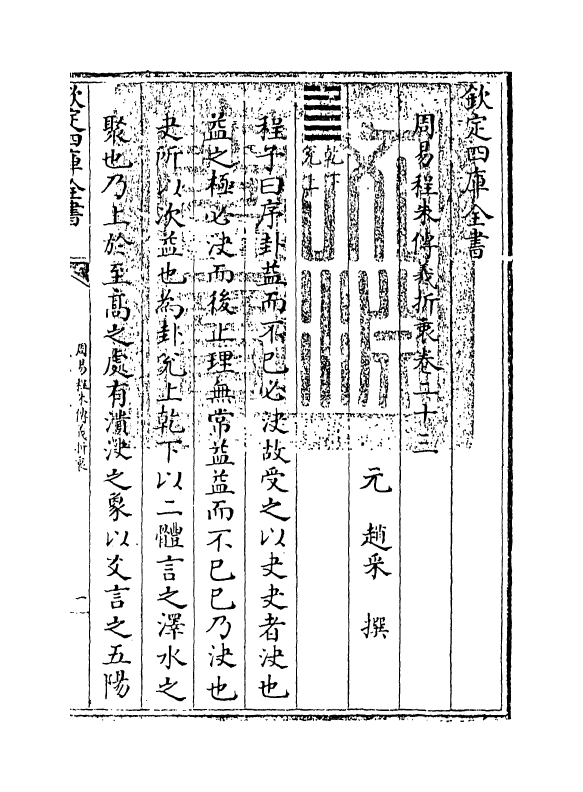 欽定四庫全書
周易程朱傳義折衷卷二十三
元　趙采　撰
乾下
兌上
程子曰序卦益而不已必決故受之以夬夬者決也
益之極必決而後止理無常益益而不已已乃決也
夬所以次益也為卦兌上乾下以二體言之澤水之
聚也乃上於至高之處有潰決之象以爻言之五陽
欽定四庫全書
周易程朱傳義折衷
一